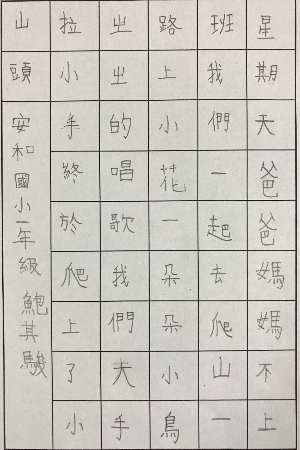 星期天爸爸媽媽不上
班我們一起去爬山一
路上小花一朵朵小鳥
ㄓㄓ的唱歌我們大手
拉小手終於爬上了小
山頭
安和國小一年級鮑其駿